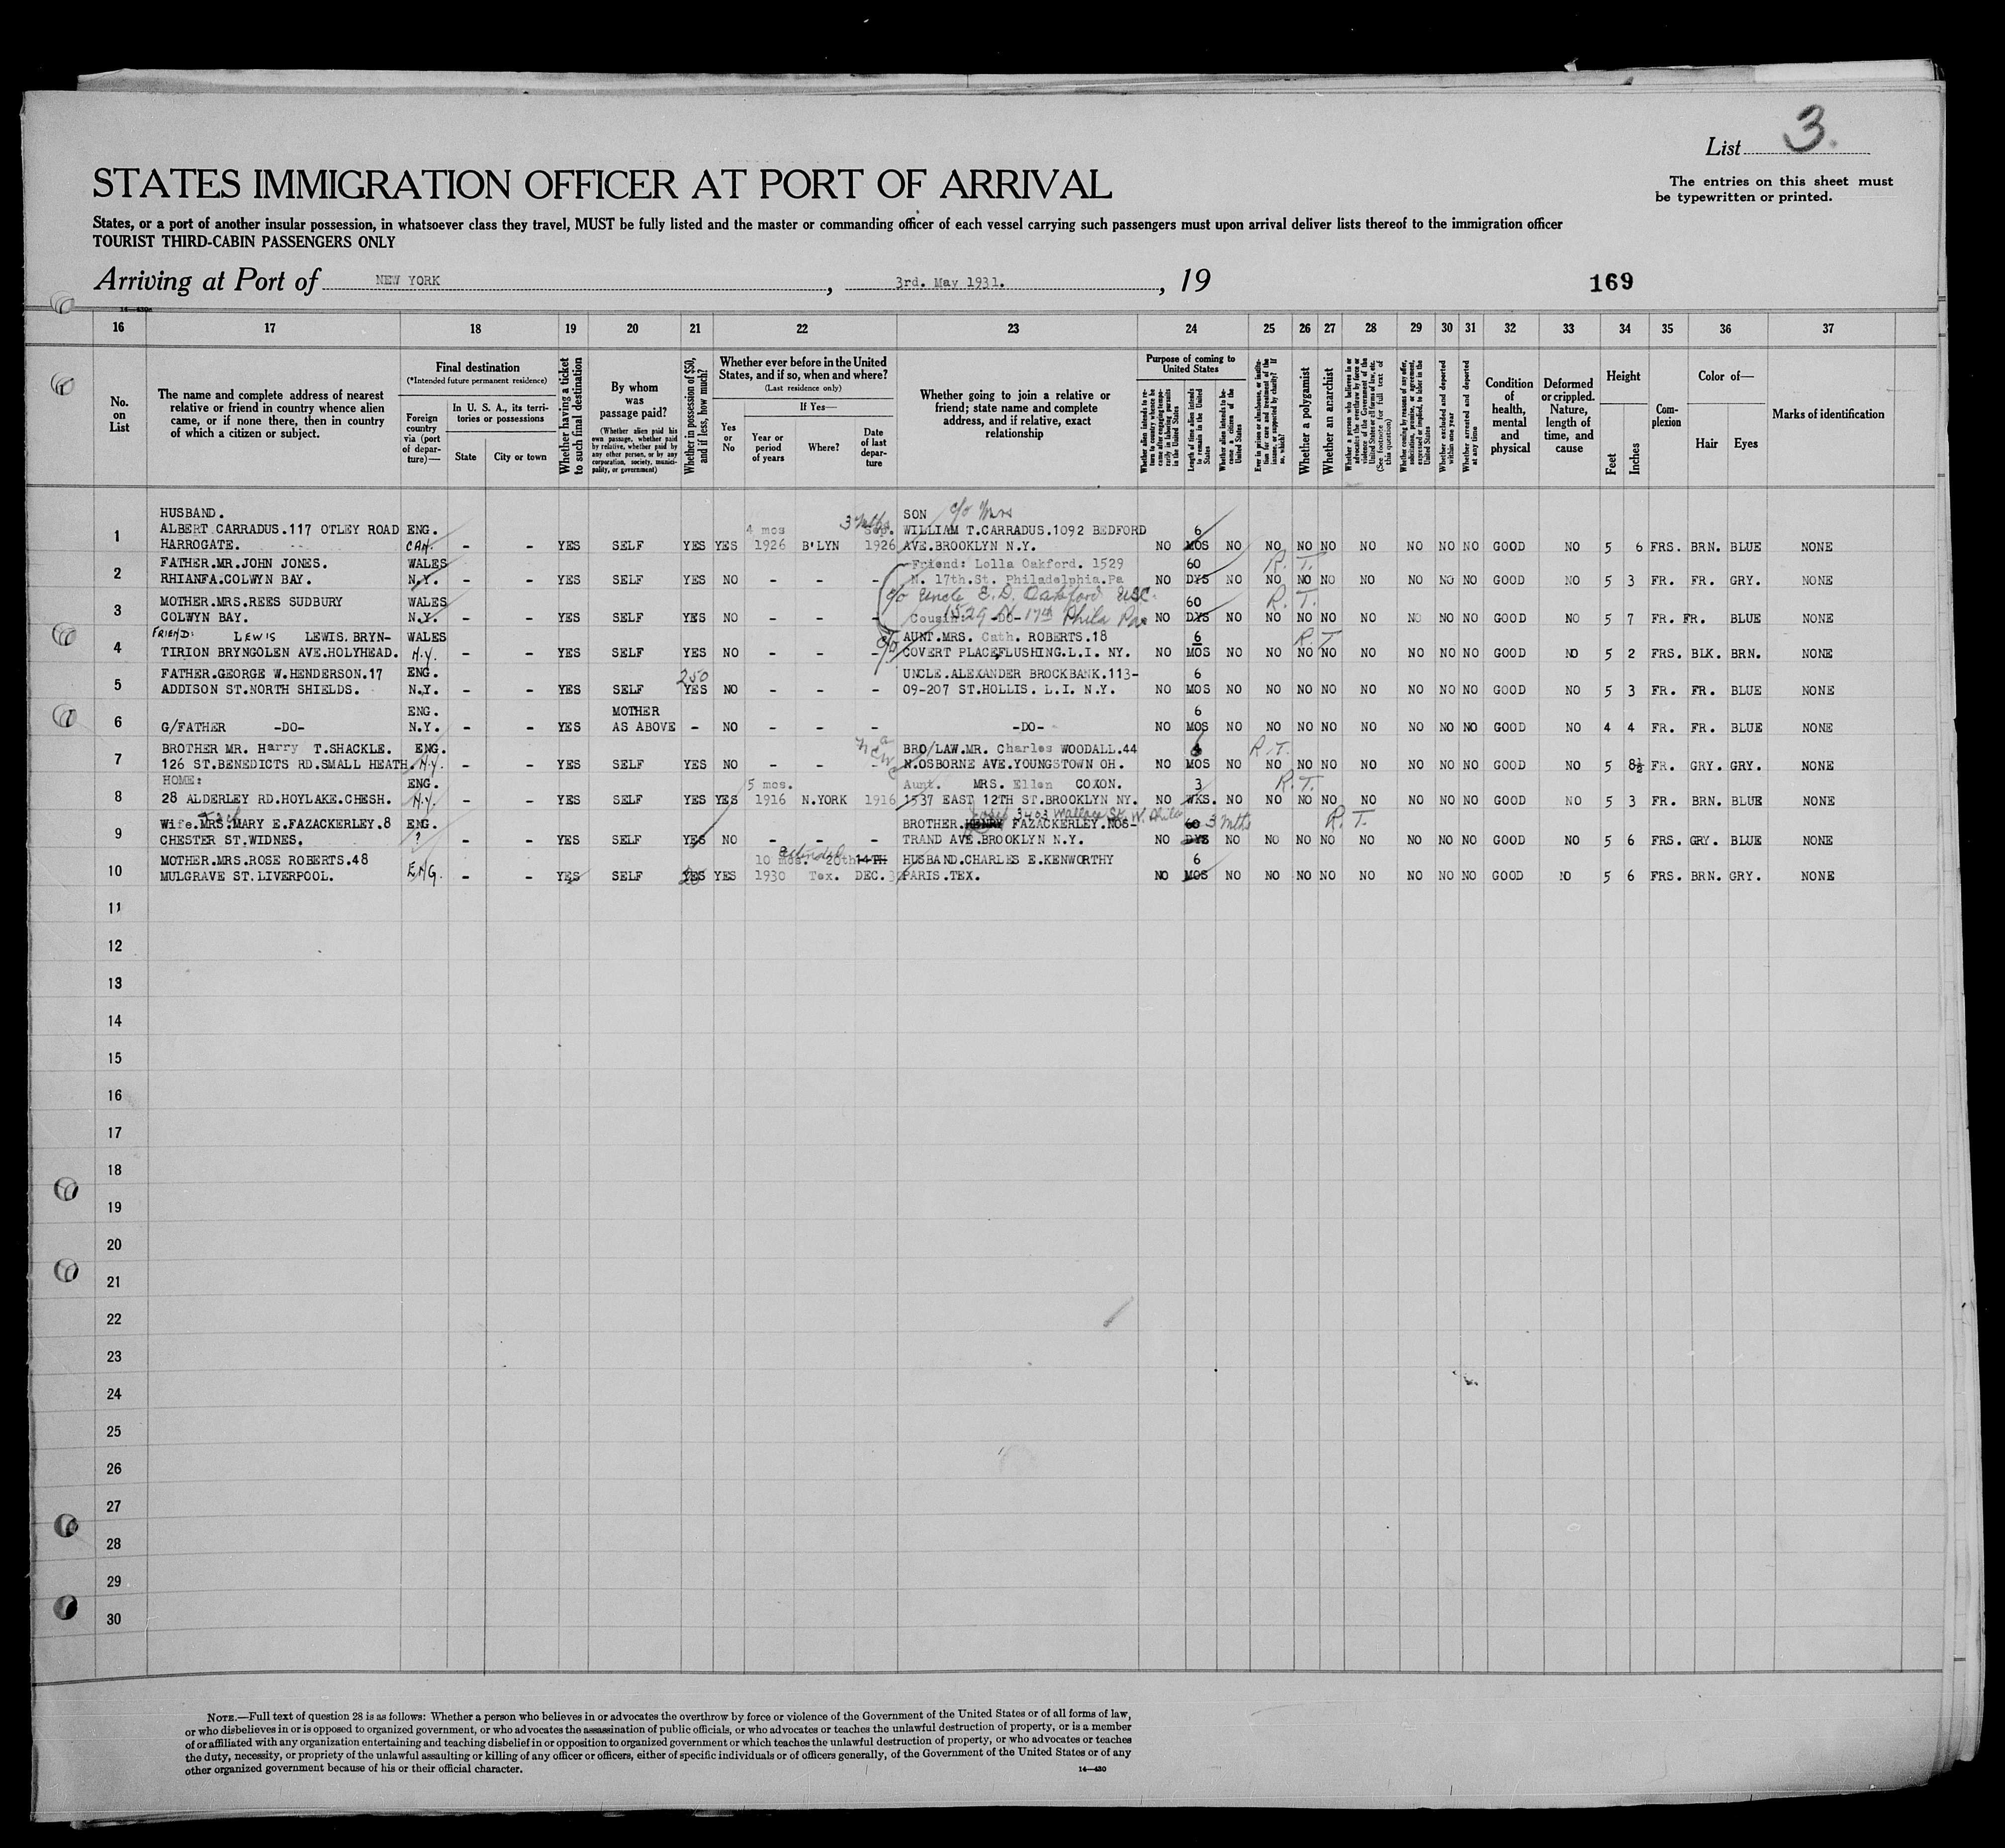 List 3.
STATES IMMIGRATION OFFICER AT PORT OF ARRIVAL
The entries on this sheet must
be typewritten or printed.
States, or a port of another insular possession, in whatsoever class they travel, MUST be fully listed and the master or commanding officer of each vessel carrying such passengers must upon arrival deliver lists thereof to the immigration officer
TOURIST THIRD-CABIN PASSENGERS ONLY
Arriving at Port of NEW YORK, 3rd. May 1931., 19
169
14—430
16 17 18 19 20 21 22 23 24 25 26 27 28 29 30 31 32 33 34 35 36 37
No. on List
The name and complete address of nearest
relative or friend in country whence alien
came, or if none there, then in country
of which a citizen or subject.
Final destination
(*Intended future permanent residence)
Foreign country via (port of departure)—
In U. S. A., its territories or possessions
State
City or town
Whether having a ticket to such final destination
By whom was passage paid?
(Whether alien paid his own passage, whether paid by relative, whether paid by any other person, or by any corporation, society, municipality, or government)
Whether in possession of $50, and if less, how much?
Whether ever before in the United States, and if so, when and where?
(Last residence only)
Yes or No
If Yes—
Year or period of years
Where?
Date of last departure
Whether going to join a relative or
friend; state name and complete
address, and if relative, exact
relationship
Purpose of coming to United States
Length of time alien intends to remain in the United States
Whether alien intends to become a citizen of the United States
Whether a polygamist
Whether an anarchist
Whether excluded and deported within one year
Whether arrested and deported at any time
Condition of health, mental and physical
Deformed or crippled. Nature, length of time, and cause
Height
Feet
Inches
Complexion
Color of—
Hair
Eyes
Marks of identification
HUSBAND. 3 Mths SON c/o Mrs
1 ALBERT CARRADUS.117 OTLEY ROAD ENG. 4 mos WILLIAM T.CARRADUS.1092 BEDFORD 6
HARROGATE. CAN. - - YES SELF YES YES 1926 B'LYN 1926 AVE.BROOKLYN N.Y. NO MOS NO NO NO NO NO NO NO NO GOOD NO 5 6 FRS. BRN. BLUE NONE
2 FATHER.MR.JOHN JONES. WALES Friend: Lolla Oakford. 1529 60 R.T.
RHIANFA.COLWYN BAY. N.Y. - - YES SELF YES NO - - - N. 17th.St. Philadelphia.Pa NO DYS NO NO NO NO NO NO NO NO GOOD NO 5 3 FR. FR. GRY. NONE
3 MOTHER.MRS.REES SUDBURY WALES c/o Uncle E.D. Oakford USC. 60 R.T.
COLWYN BAY. N.Y. - - YES SELF YES NO - - - Cousin: -DO- 1529 N 17th Phila Pa NO DYS NO NO NO NO NO NO NO NO GOOD NO 5 7 FR. FR. BLUE NONE
4 FRIEND: LEWIS LEWIS.BRYN- WALES c/o AUNT.MRS. Cath. ROBERTS.18 6 R.T.
TIRION BRYNGOLEN AVE.HOLYHEAD. N.Y. - - YES SELF YES NO - - - COVERT PLACE,FLUSHING.L.I. NY. NO MOS NO NO NO NO NO NO NO NO GOOD NO 5 2 FRS. BLK. BRN. NONE
5 FATHER.GEORGE W.HENDERSON.17 ENG. 250 UNCLE.ALEXANDER BROCKBANK.113- 6
ADDISON ST.NORTH SHIELDS. N.Y. - - YES SELF YES NO - - - 09-207 ST.HOLLIS. L.I. N.Y. NO MOS NO NO NO NO NO NO NO NO GOOD NO 5 3 FR. FR. BLUE NONE
ENG. MOTHER 6
6 G/FATHER -DO- N.Y. - - YES AS ABOVE - NO - - - -DO- NO MOS NO NO NO NO NO NO NO NO GOOD NO 4 4 FR. FR. BLUE NONE
7 BROTHER MR. Harry T.SHACKLE. ENG. BRO/LAW.MR. Charles WOODALL.44 6 R.T.
126 ST.BENEDICTS RD.SMALL HEATH. N.Y. - - YES SELF YES NO - - - N.OSBORNE AVE.YOUNGSTOWN OH. NO MOS NO NO NO NO NO NO NO NO GOOD NO 5 8½ FR. GRY. GRY. NONE
8 HOME: ENG. 5 mos. Aunt. MRS. Ellen COXON. 3 R.T.
28 ALDERLEY RD.HOYLAKE.CHESH. N.Y. - - YES SELF YES YES 1916 N.YORK 1916 1537 EAST 12TH ST.BROOKLYN NY. NO WKS. NO NO NO NO NO NO NO NO GOOD NO 5 3 FR. BRN. BLUE NONE
9 Wife.MRS.MARY E.FAZACKERLEY.8 ENG. BROTHER.HENRY Josef 3403 Wallace St. W. Phila FAZACKERLEY.NOS- 60 3 Mths R.T.
CHESTER ST.WIDNES. ? - - YES SELF YES NO - - - TRAND AVE.BROOKLYN N.Y. NO DYS NO NO NO NO NO NO NO NO GOOD NO 5 6 FRS. GRY. BLUE NONE
10 MOTHER.MRS.ROSE ROBERTS.48 ENG. 10 mos. 20th 14TH HUSBAND.CHARLES E.KENWORTHY 6
MULGRAVE ST.LIVERPOOL. - - YES SELF YES YES 1930 Tex. DEC.30 PARIS.TEX. NO MOS NO NO NO NO NO NO NO NO GOOD NO 5 6 FRS. BRN. GRY. NONE
11
12
13
14
15
16
17
18
19
20
21
22
23
24
25
26
27
28
29
30
NOTE.—Full text of question 28 is as follows: Whether a person who believes in or advocates the overthrow by force or violence of the Government of the United States or of all forms of law,
or who disbelieves in or is opposed to organized government, or who advocates the assassination of public officials, or who advocates or teaches the unlawful destruction of property, or is a member
of or affiliated with any organization entertaining and teaching disbelief in or opposition to organized government or which teaches the unlawful destruction of property, or who advocates or teaches
the duty, necessity, or propriety of the unlawful assaulting or killing of any officer or officers, either of specific individuals or of officers generally, of the Government of the United States or of any
other organized government because of his or their official character.
14—430